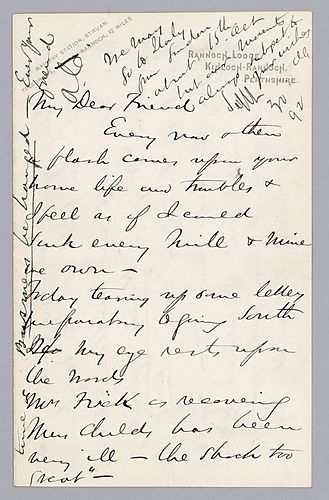 RAILWAY STATION, STRUAN.
RANNOCH, 12 MILES
RANNOCH LODGE,
KINLOCH-RANNOCH,
PERTHSHIRE.
We may
go to Italy
from London
about 15th Oct
but
always subject to
Sept 30
92
My Dear Friend
Every now & then
a flash comes upon your
home life and troubles &
I feel as if I could
sink every Mill & Mine
we own —
Today tearing up some letters
preparatory to going South
my eye rests upon
the words
Mrs Frick is recovering
Mrs Childs has been
very ill — the shock too
great" —
must be changed — Ever Your
friend
AC